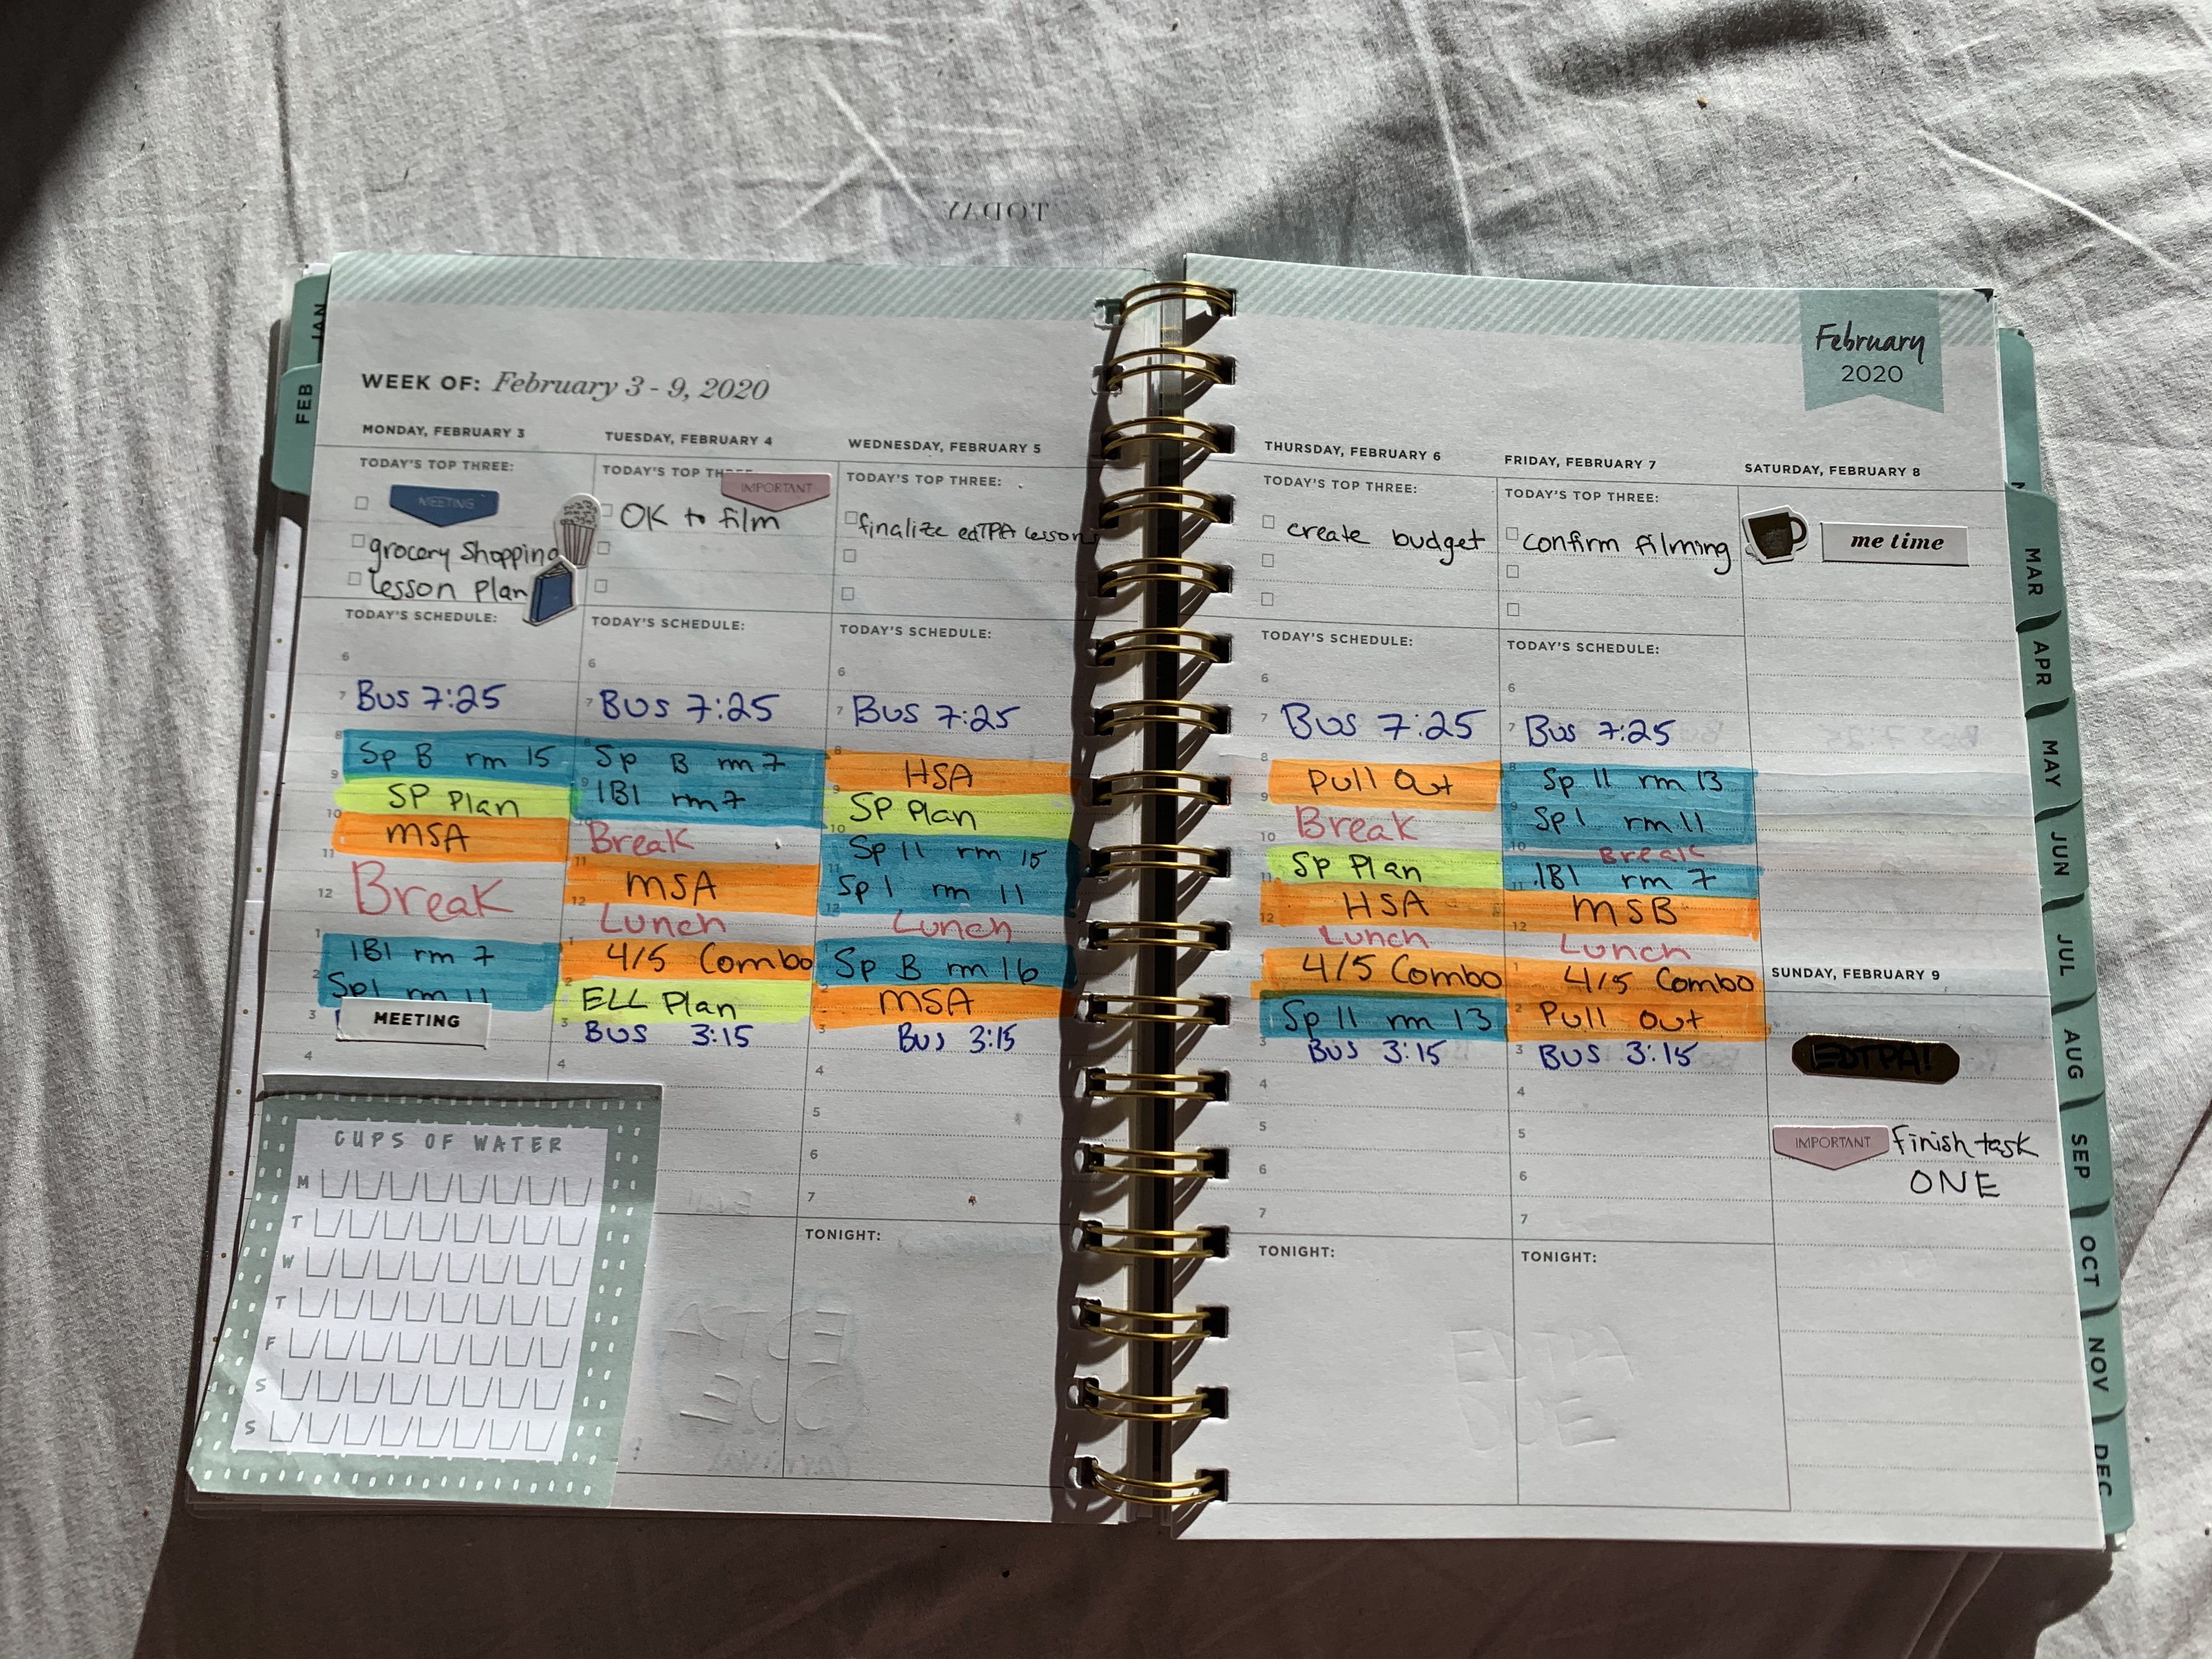 TODAY
JAN
FEB
WEEK OF: February 3 - 9, 2020
MONDAY, FEBRUARY 3
TODAY'S TOP THREE:
MEETING
grocery shopping
lesson plan
TODAY'S SCHEDULE:
6
7 Bus 7:25
8 Sp B rm 15
9 SP Plan
10 MSA
11
12 Break
1 IBI rm 7
2 Sp I rm 11
3 MEETING
4
CUPS OF WATER
M
T
W
T
F
S
S
TUESDAY, FEBRUARY 4
TODAY'S TOP
IMPORTANT
OK to film
TODAY'S SCHEDULE:
6
7 Bus 7:25
8 Sp B rm 7
9 IBI rm 7
10 Break
11 MSA
12 Lunch
1 4/5 Combo
2 ELL Plan
3 Bus 3:15
4
WEDNESDAY, FEBRUARY 5
TODAY'S TOP THREE:
finalize edTPA lessons
TODAY'S SCHEDULE:
6
7 Bus 7:25
8 HSA
9 SP Plan
10 Sp II rm 15
11 Sp I rm 11
12 Lunch
1 Sp B rm 16
2 MSA
3 Bus 3:15
4
5
6
7
TONIGHT:
February
2020
THURSDAY, FEBRUARY 6
TODAY'S TOP THREE:
create budget
TODAY'S SCHEDULE:
6
7 Bus 7:25
8 Pull Out
9
10 Break
SP Plan
11 HSA
12 Lunch
4/5 Combo
Sp II rm 13
3 Bus 3:15
4
5
6
7
TONIGHT:
FRIDAY, FEBRUARY 7
TODAY'S TOP THREE:
confirm filming
TODAY'S SCHEDULE:
6
7 Bus 7:25
8 Sp II rm 13
9 Sp I rm 11
10 Break
11 IBI rm 7
MSB
12 Lunch
1 4/5 Combo
2 Pull Out
3 Bus 3:15
4
5
6
7
TONIGHT:
EDTPA
DUE
SATURDAY, FEBRUARY 8
me time
SUNDAY, FEBRUARY 9
EDTPA!
IMPORTANT finish task
ONE
MAR
APR
MAY
JUN
JUL
AUG
SEP
OCT
NOV
DEC